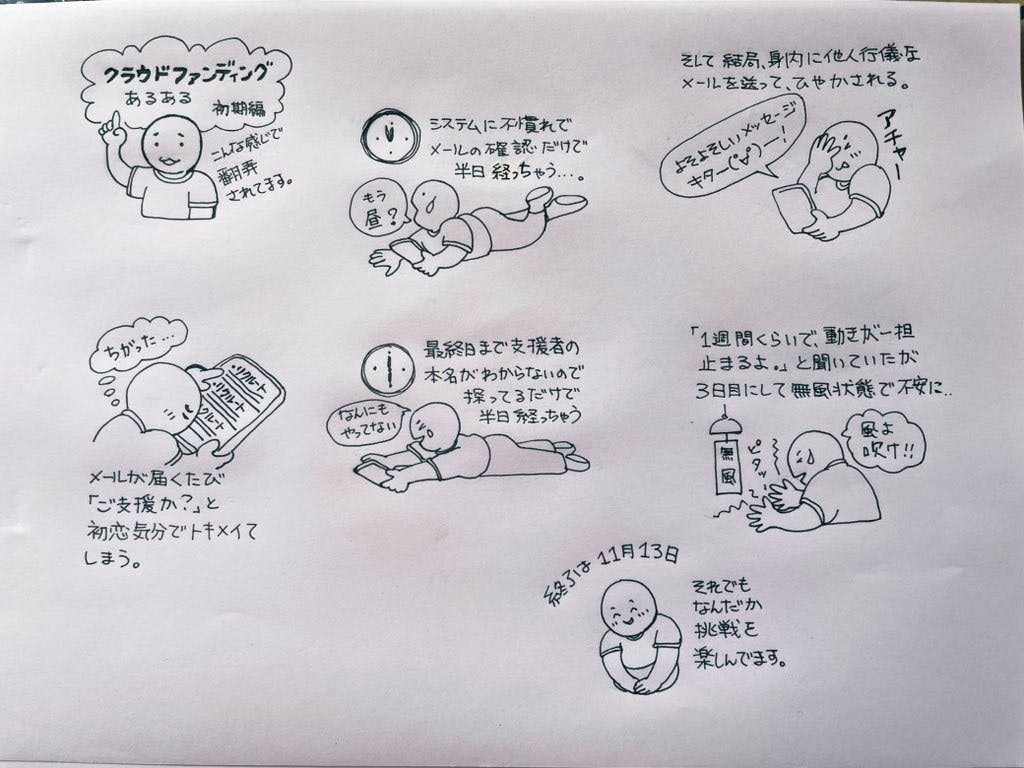 クラウドファンディング
あるある
初期編
こんな感じで
翻弄
されてます。
システムに不慣れで
メールの確認だけで
半日経っちゃう…。
もう
昼?
そして結局、身内に他人行儀な
メールを送って、ひやかされる。
よそよそしいメッセージ
キター(゚∀゚)ー!
アチャー
ちがった…
ソクルート
ソクルート
ソクルート
メールが届くたび
「ご支援か?」と
初恋気分でトキメイて
しまう。
最終日まで支援者の
本名がわからないので
探ってるだけで
半日経っちゃう
なんにも
やってない
「1週間くらいで、動きが一担
止まるよ。」と聞いていたが
3日目にして無風状態で不安に..
無風
ピタッ
風よ
吹け!!
終了は11月13日
それでも
なんだか
挑戦を
楽しんでます。